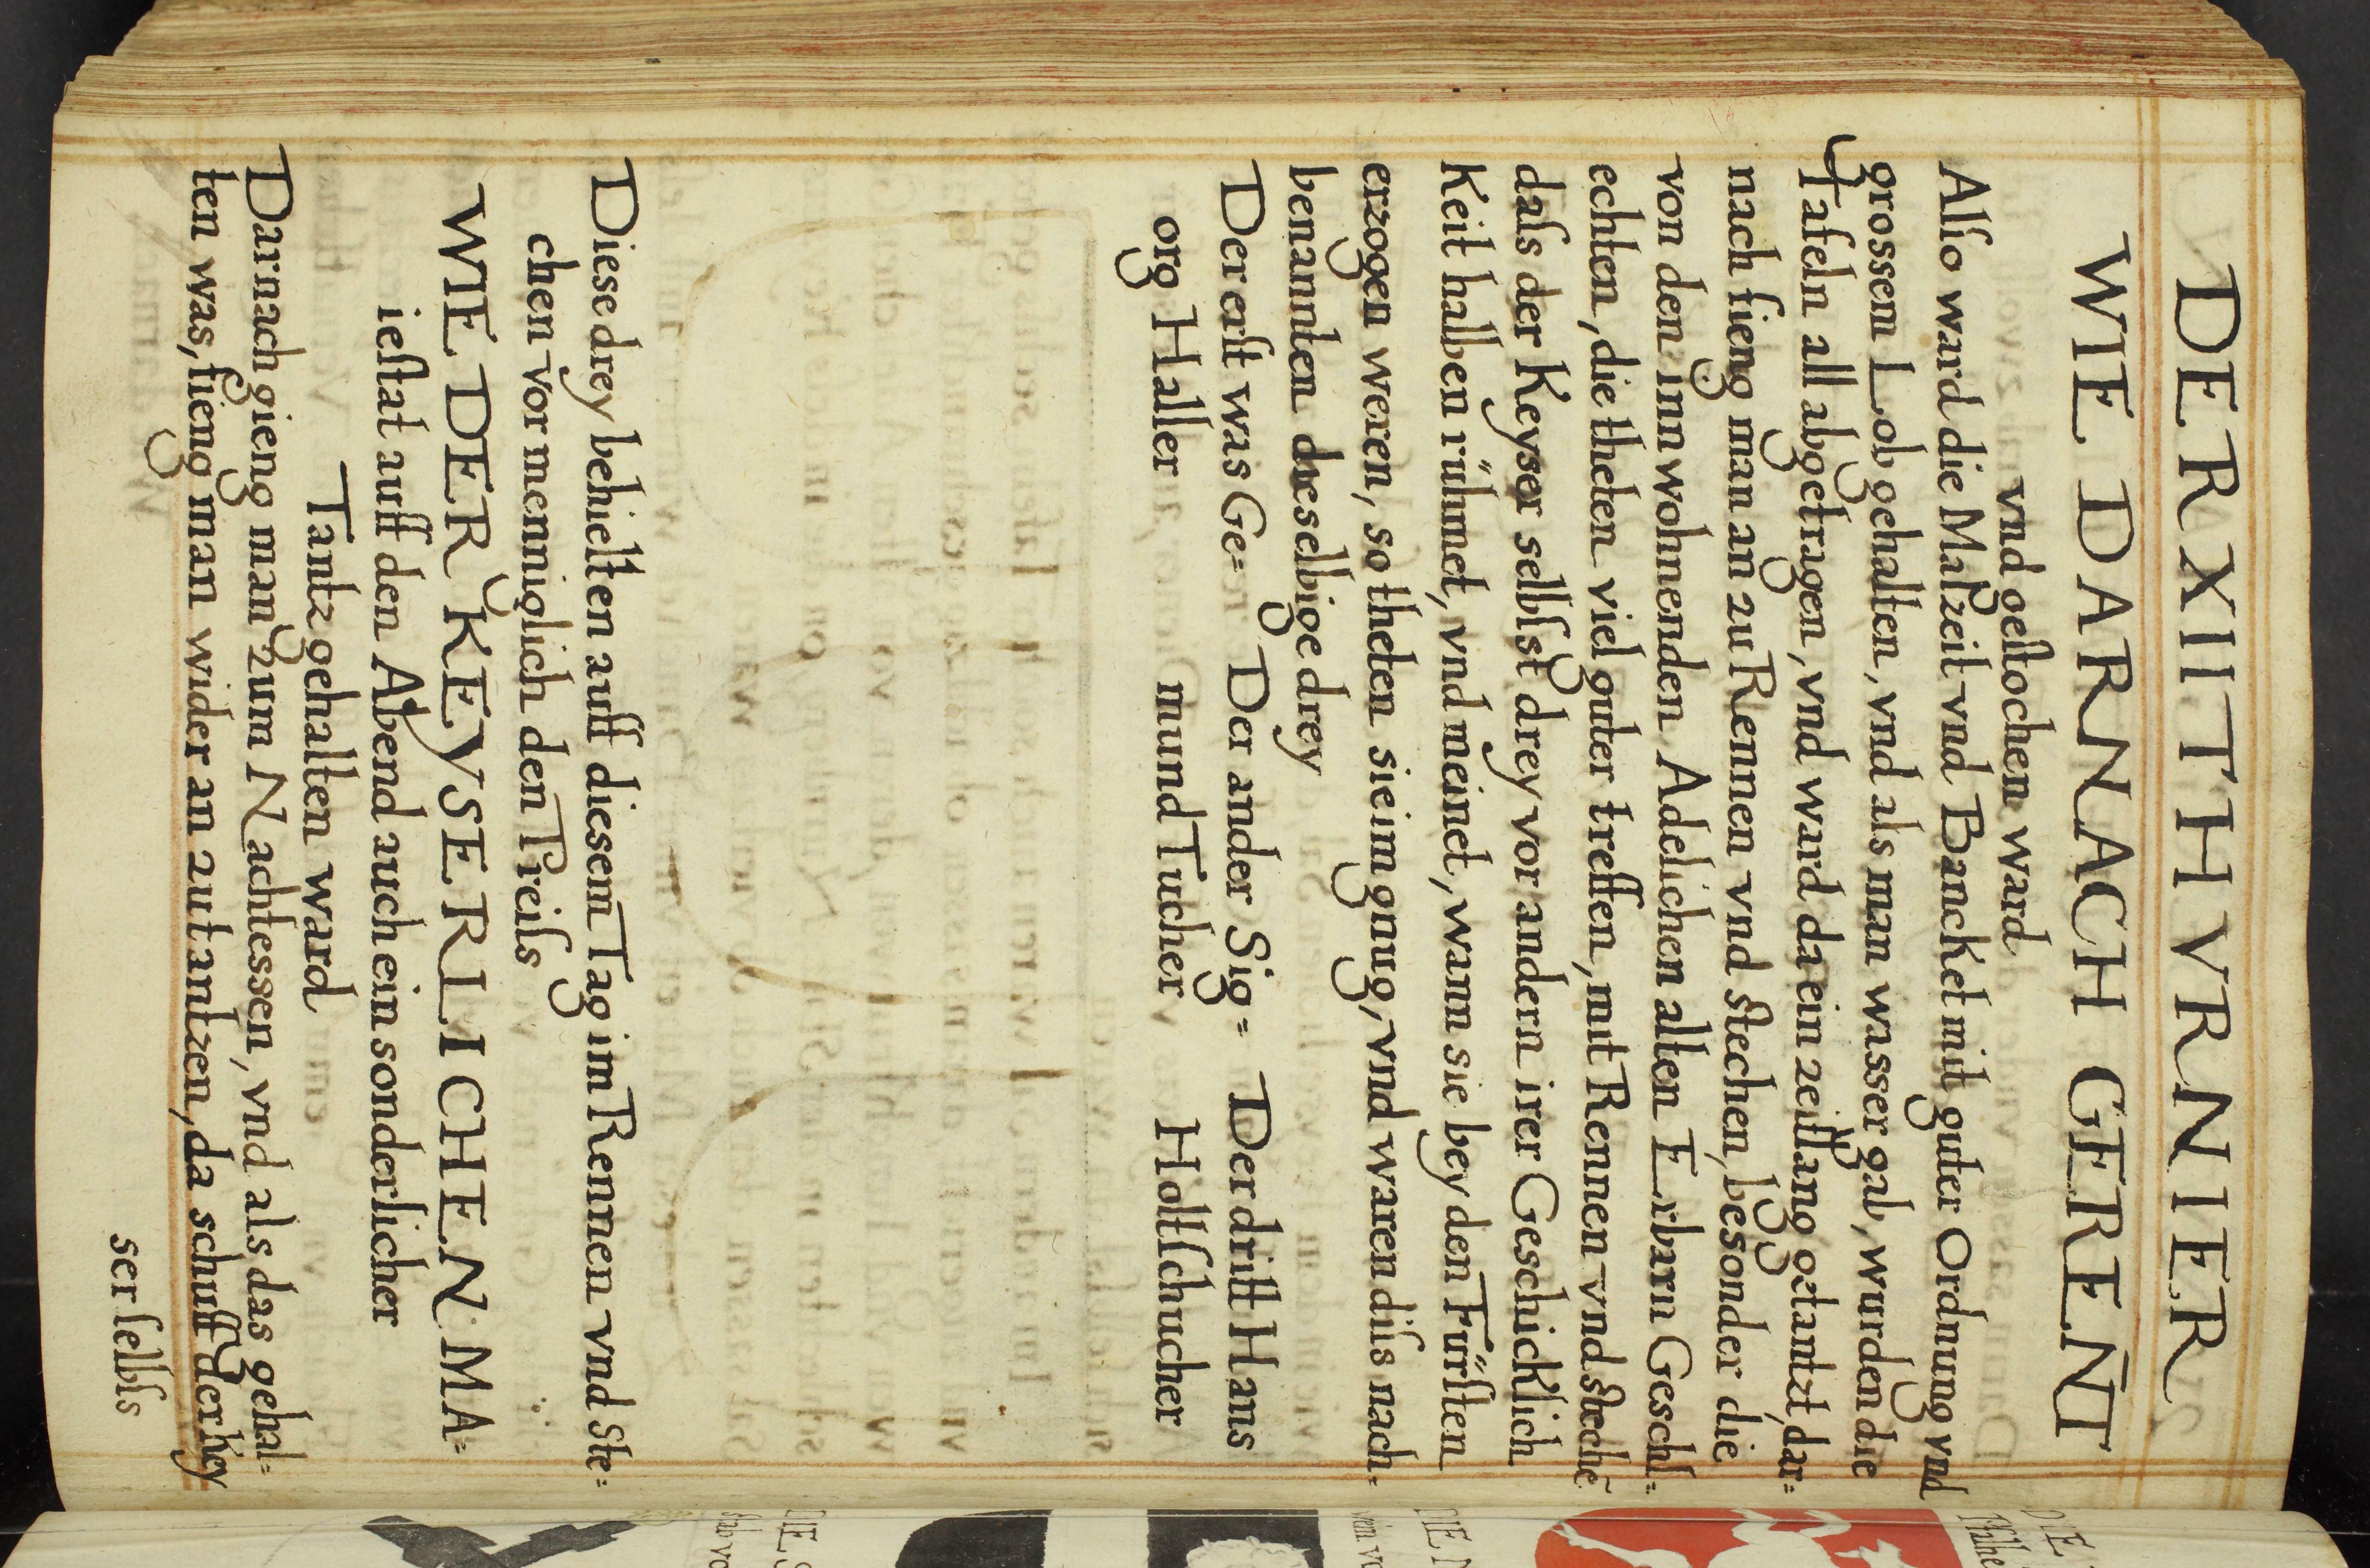 DER XII THVRNIER
WIE DARNACH GEREÑT
vnd gestochen ward
Also ward die Malzeit vnd Bancket mit guter Ordnung vnd
grossem Lob gehalten, vnd als man wasser gab, wurden die
Tafeln all abgetragen, vnd ward da ein zeittlang getantzt, dar=
nach fieng man an zu Rennen vnd stechen, besonder die
von den inn wohnenden Adelichen alten Erbarn Geschl=
echten, die theten viel guter treffen, mit Rennen vnd steche͂
dass der Keyser selbst drey vor andern irer Geschicklich
Keit halben rühmet, vnd meinet, wann sie bey den Fürsten
erzogen weren, so theten sie im gnug, vnd waren diss nach=
benannten dieselbige drey
Der erst was Ge= Der ander Sig= Der dritt Hans
org Haller mund Tucher Holtschucher
Diese drey behielten auff diesem Tag im Rennen vnd Ste=
chen vor menniglich den Preiss
WIE DER KEYSERLICHEN MA=
iestat auff den Abend auch ein sonderlicher
Tantz gehalten ward
Darnach gieng man zum Nachtessen, vnd als das gehal=
ten was, fieng man wider an zu tantzen, da schuff der Key
ser selbs